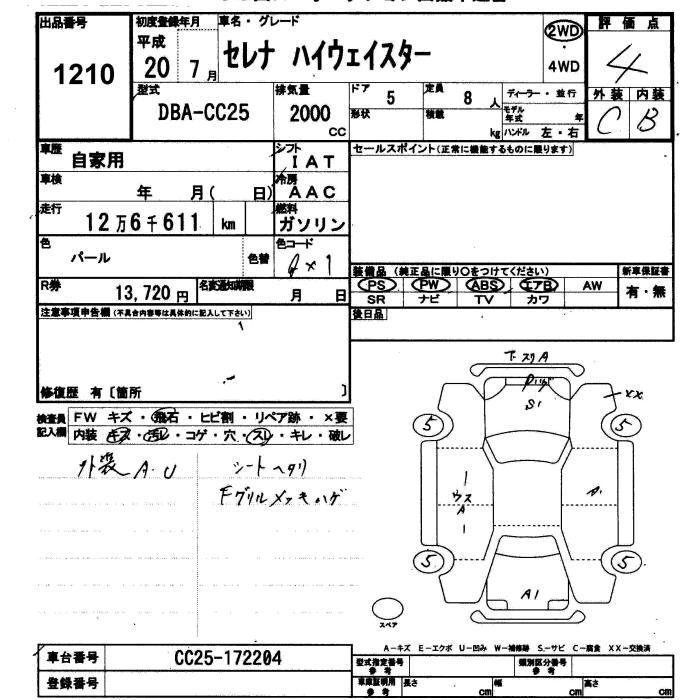 出品番号
1210
初度登録年月
平成
20 7月
車名・グレード
セレナ ハイウェイスター
2WD
4WD
評価点
4
外装 内装
C B
型式
DBA-CC25
排気量
2000
CC
ドア
5
定員
8人
形状
積載
kg
ディーラー・並行
モデル年式 年
ハンドル 左・右
車歴
自家用
シフト
IAT
車検
年 月( 日)
冷房
AAC
走行
12万6千611 km
燃料
ガソリン
色
パール
色替
色コード
Qx1
R券
13,720円
名変通知期限
月 日
セールスポイント(正常に機能するものに限ります)
装備品(純正品に限り○をつけてください)
PS PW ABS エアB AW
SR ナビ TV カワ
新車保証書
有・無
後日品
注意事項申告欄(不具合内容等は具体的に記入して下さい)
修復歴 有〔箇所 〕
検査員記入欄
FW キズ・飛石・ヒビ割・リペア跡・×要
内装 キズ・汚レ・コゲ・穴・スレ・キレ・破レ
外装 A.U
シートヘタリ
Fグリルメッキハゲ
下スリA
S1
XX
5
5
ウス
A
A1
5
5
A1
スペア
A-キズ E-エクボ U-凹み W-補修跡 S-サビ C-腐食 XX-交換済
車台番号
CC25-172204
登録番号
型式指定番号
参考
類別区分番号
参考
車庫証明用
参考
長さ cm
幅 cm
高さ cm